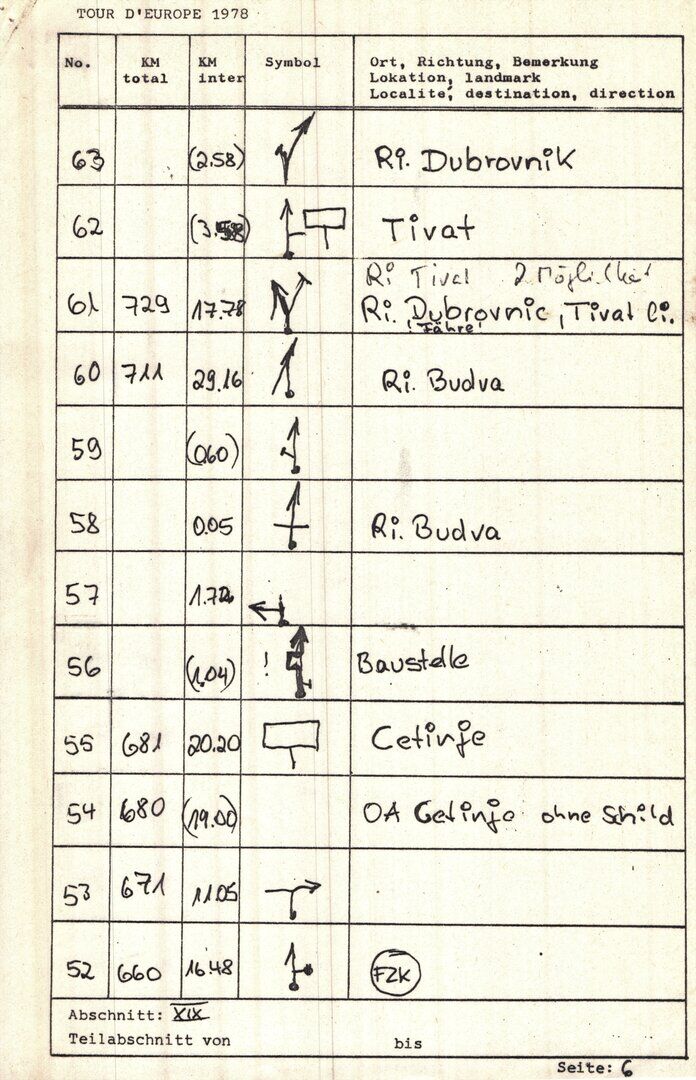 TOUR D'EUROPE 1978
No. KM total KM inter Symbol Ort, Richtung, Bemerkung
Lokation, landmark
Localité, destination, direction
63 (2.58) Ri. Dubrovnik
62 (3.58) Tivat
Ri Tivat 2 Möglichkei
61 729 17.78 Ri. Dubrovnic, Tivat li.
! Fähre!
60 711 29.16 Ri. Budva
59 (0.60)
58 0.05 Ri. Budva
57
56 (1.04) ! Baustelle
55 681 20.20 Cetinje
54 680 (19.00) OA Cetinje ohne Schild
53 671 11.05
52 660 16.48 FZK
Abschnitt: XIX
Teilabschnitt von bis
Seite: 6